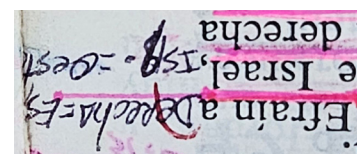 Efraín a DERECHA=ES
e Israel, =OEST
derecha